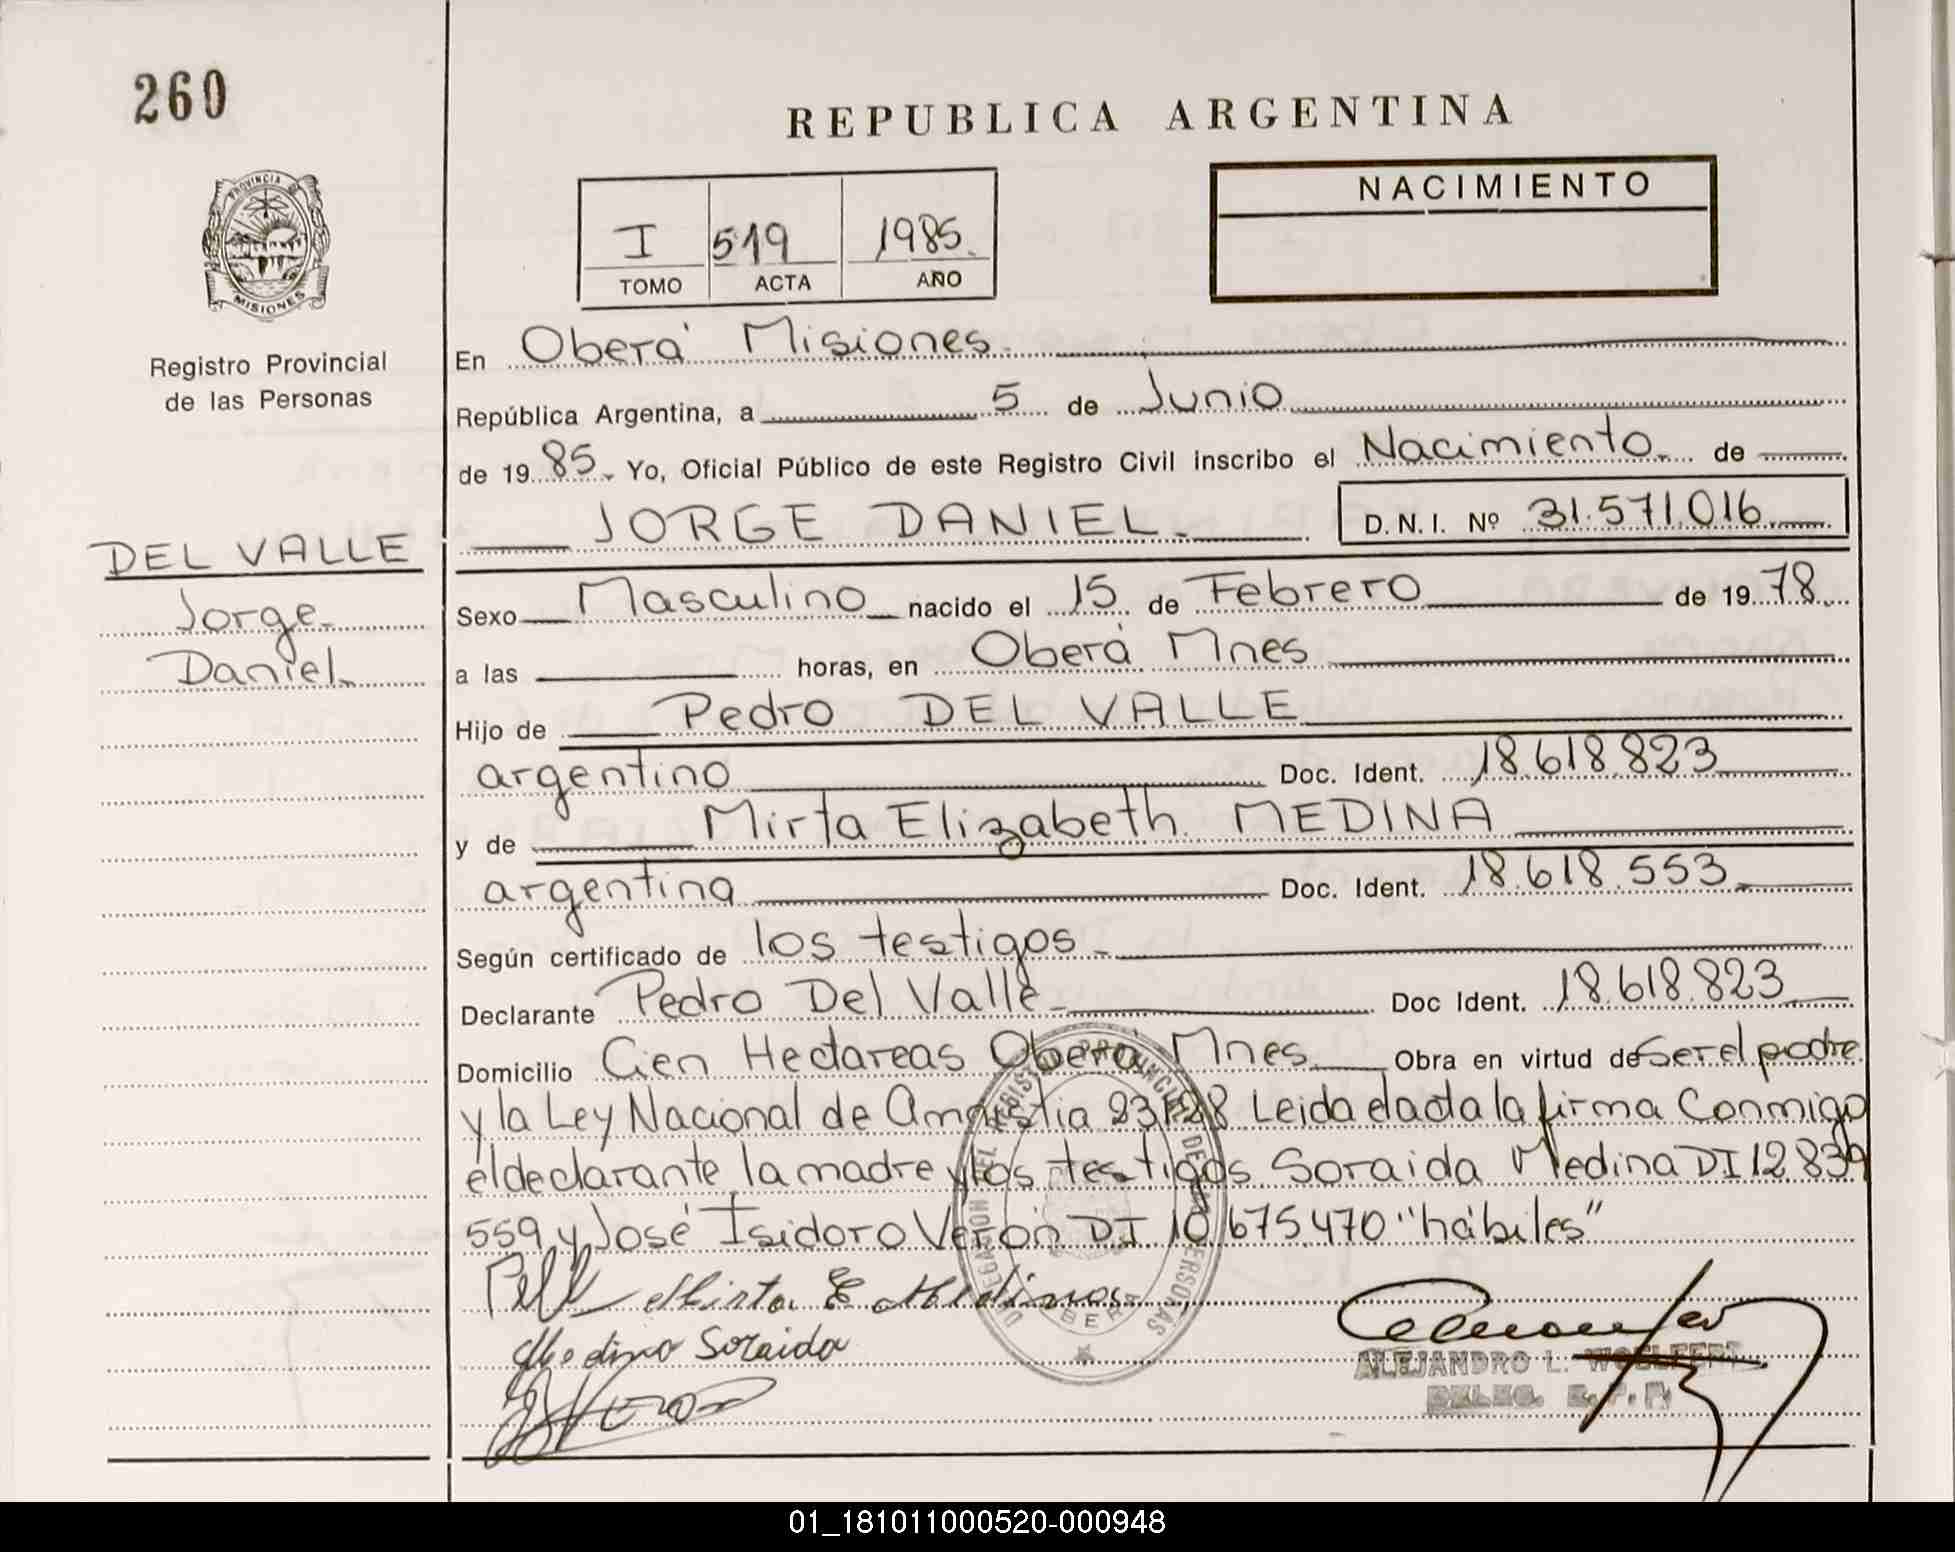 260
REPUBLICA ARGENTINA
PROVINCIA DE
MISIONES
Registro Provincial
de las Personas
I 519 1985.
TOMO ACTA AÑO
NACIMIENTO
En Oberá Misiones.
República Argentina, a 5 de Junio
de 19 85. Yo, Oficial Público de este Registro Civil inscribo el Nacimiento. de
JORGE DANIEL. D.N.I. Nº 31.571.016
DEL VALLE
Jorge
Daniel
Sexo Masculino nacido el 15 de Febrero de 19 78.
a las horas, en Oberá Mnes
Hijo de Pedro DEL VALLE
argentino Doc. Ident. 18.618.823
y de Mirta Elizabeth MEDINA
argentina Doc. Ident. 18.618.553.
Según certificado de los testigos
Declarante Pedro Del Valle Doc Ident. 18.618.823
Domicilio Cien Hectareas Oberá Mnes. Obra en virtud de Ser el padre
y la Ley Nacional de Amnistia Leida el acta la firma Conmigo
el declarante la madre y los testigos Soraida Medina DI 12.839
559 y José Isidoro Verón DI 10.675.470 "hábiles"
Mirta E Medina
Medina Soraida
ALEJANDRO L. WOELFERT
DELEG. R.P.P.
01_181011000520-000948